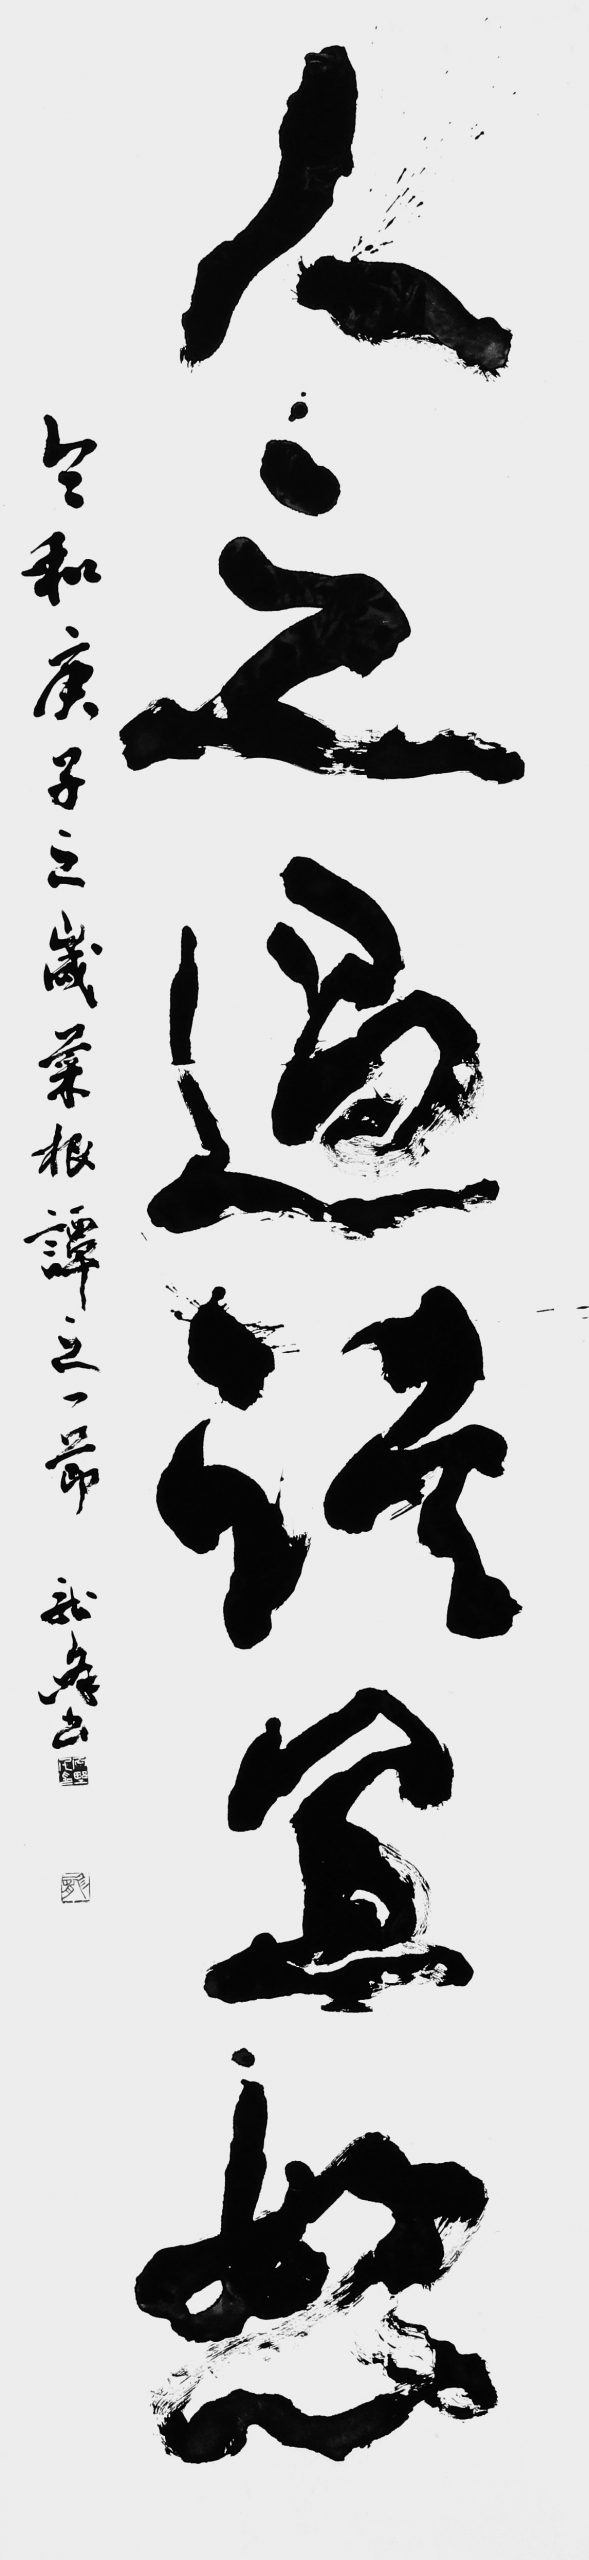 人之過誤宜恕
令和庚子之歳菜根譚之一節 龍峰書